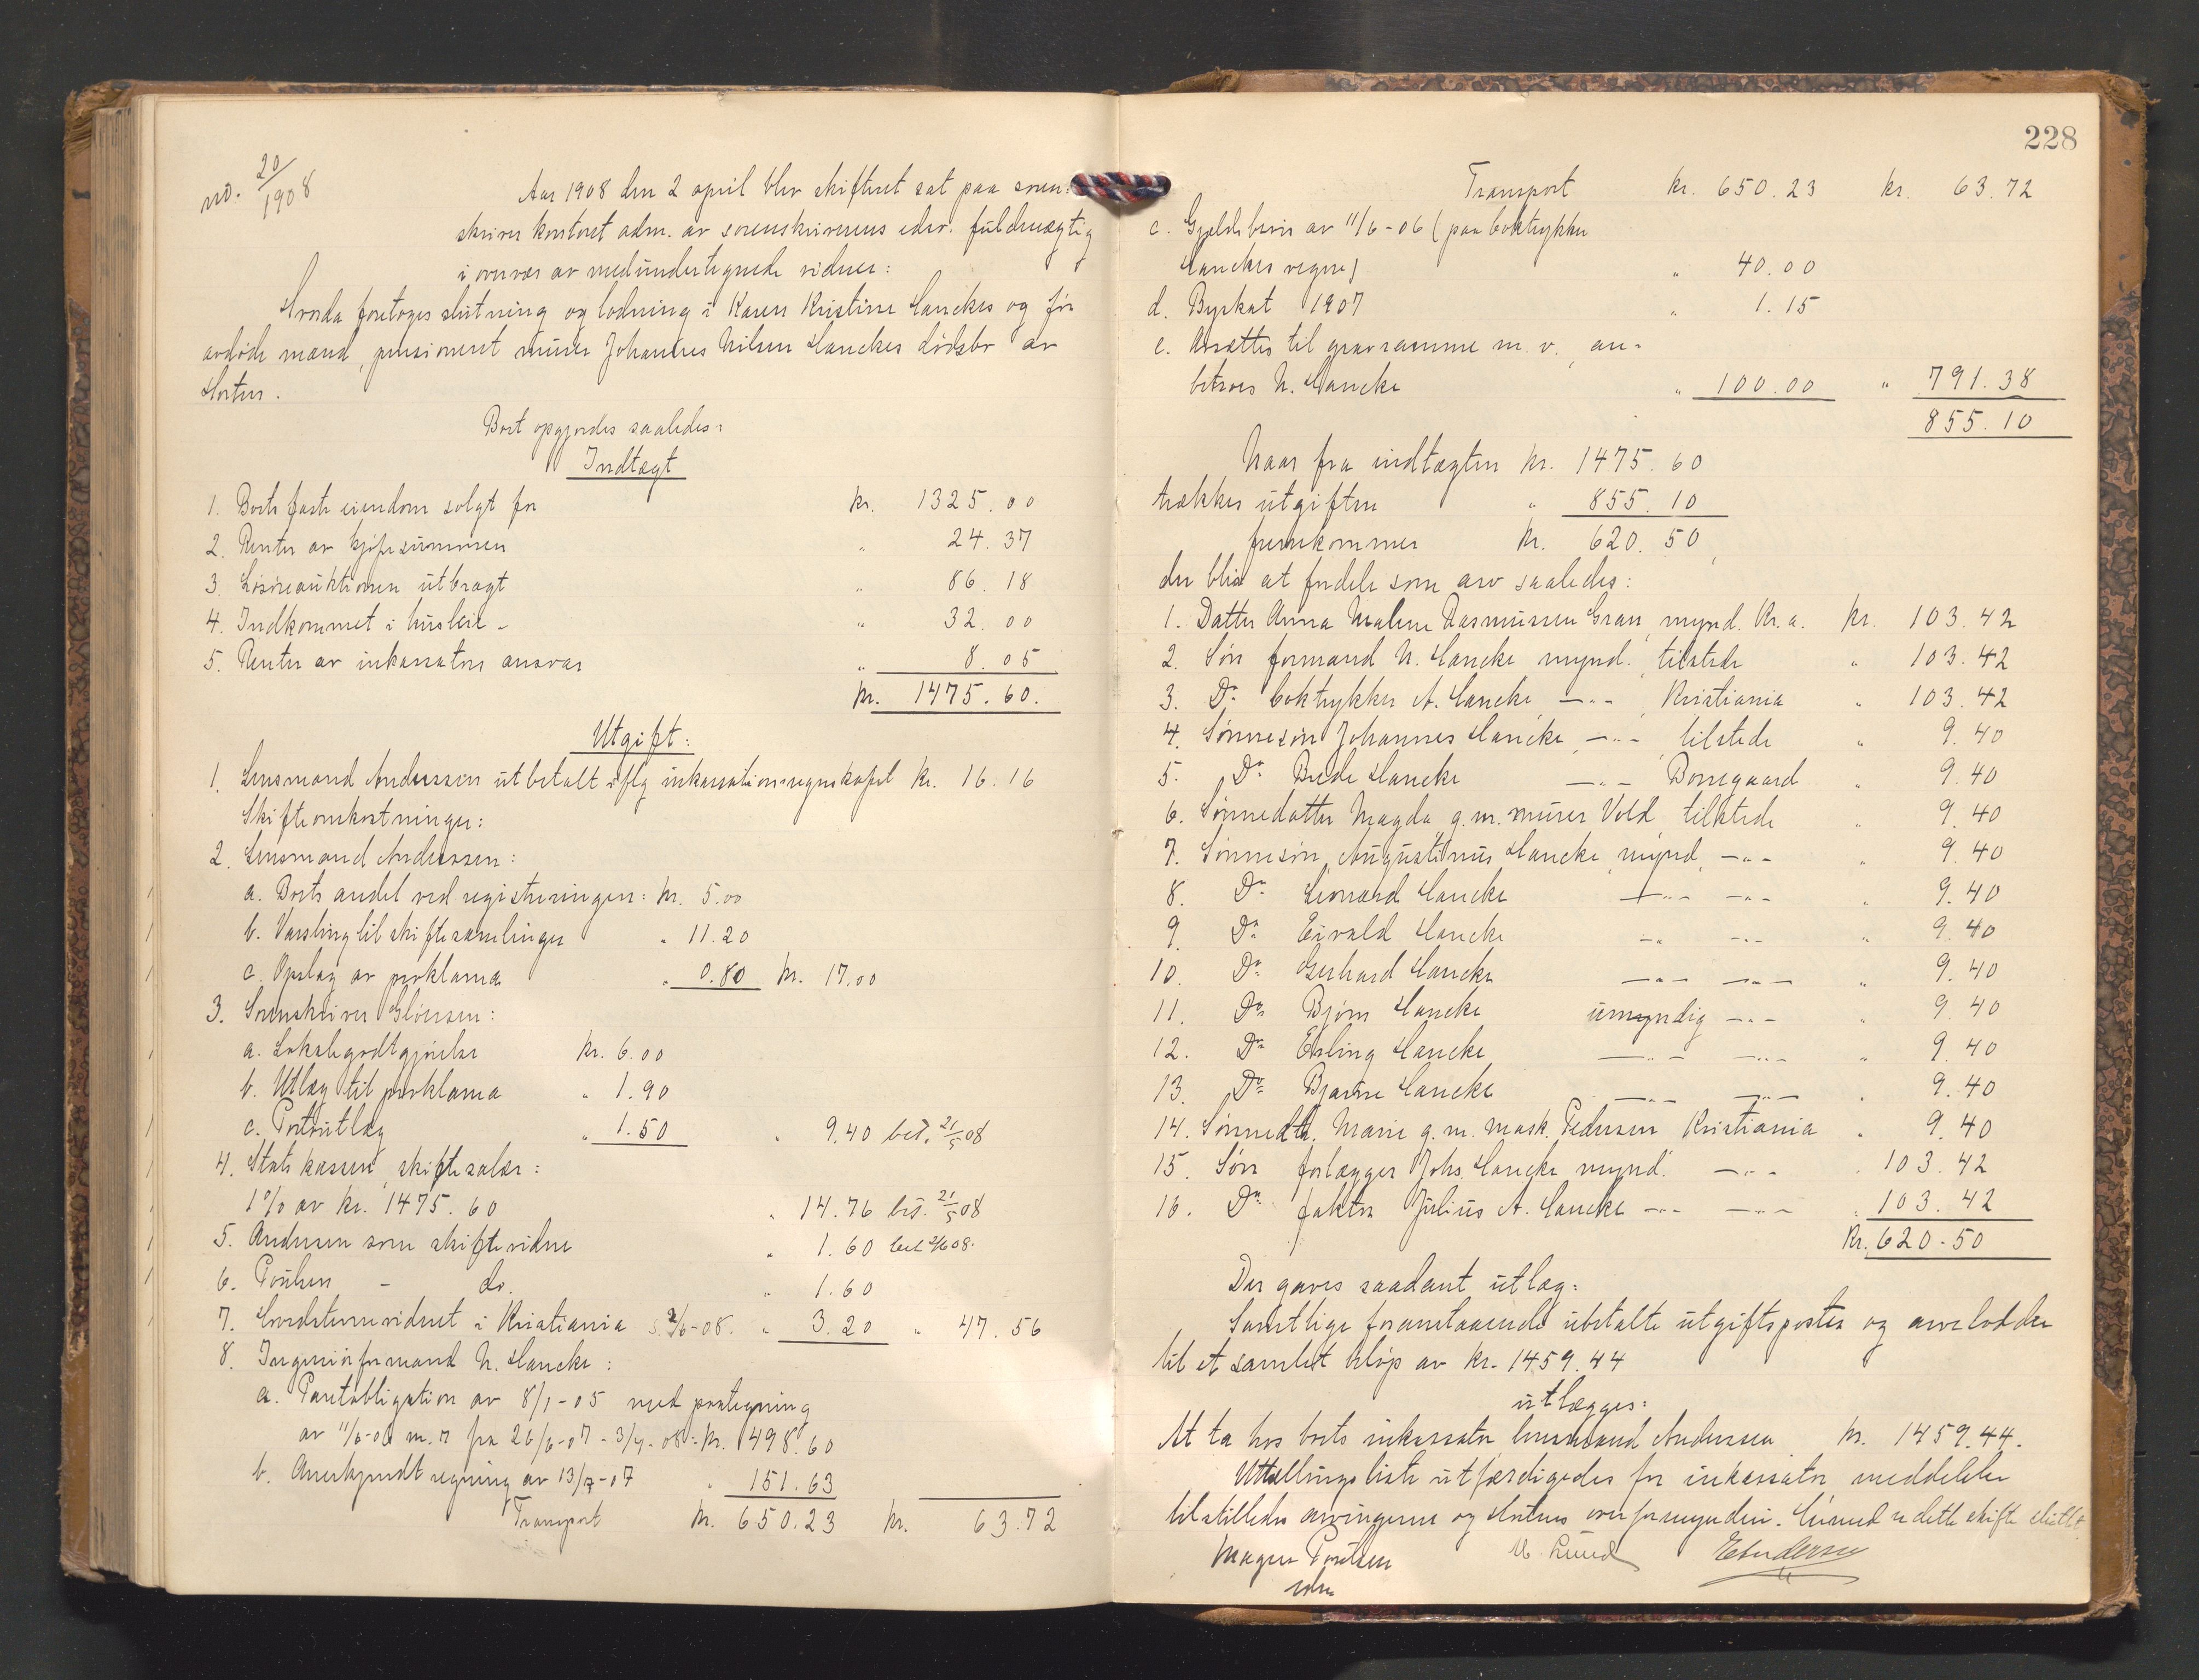 no. 20/1908
Aar 1908 den 2 april blev skifteret sat paa soren=
skriverkontoret adm. av sorenskriverens edsv. fuldmægtig
i overvær av medundertegnede vidner:
Hvorda foretoges slutning og lodning i Karen Kristine Hanckes og før
avdøde mand, pensioneret murer Johannes Nilsen Hanckes dødsbo av
Horten.
Boet opgjordes saaledes:
Indtægt
1. Boets faste eiendom solgt for kr. 1325.00
2. Renter av kjøpesummen " 24.37
3. Løsøreauktionen utbragt " 86.18
4. Indkommet i husleie - " 32.00
5. Renter av inkassators ansvar " 8.05
kr. 1475.60.
Utgift:
1. Lensmand Anderssen utbetalt iflg inkassationsregnskapet kr. 16.16
Skifteomkostninger:
2. Lensmand Anderssen:
a. Boets andel ved registreringen: kr. 5.00
b. Varsling til skiftesamlinger " 11.20
c. Opslag av proklama " 0.80 kr. 17.00
3. Sorenskriver Gløersen:
a. Lokalegodtgjørelse kr. 6.00
b. Utlæg til proklama " 1.90
c. Portoutlæg " 1.50 " 9.40 bet. 21/5 08
4. Statskassen, skiftesalær:
1% av kr. 1475.60 " 14.76 bet. 21/5 08
5. Andersen som skiftevidne " 1.60 bet 2/6 08.
6. Poulsen - do. " 1.60
7. Hovedstevnevidnet i Kristiania s. 2/6-08. " 3.20 " 47.56
8. Ingeniørformand N. Hancke:
a. Panteobligation av 8/1-05 med paategning
av 11/6-06 m. r fra 26/6-07 - 3/4-08: kr. 498.60
b. Anerkjendt regning av 13/7-07 " 151.63
Transport kr. 650.23 kr. 63.72
228
Transport kr. 650.23 kr. 63.72
c. Gjeldsbevis av 11/6-06 (paa boktrykker
Hanckes vegne) " 40.00
d. Byskat 1907 " 1.15
e. Avsættes til gravramme m. v. an=
betroes N. Hancke " 100.00 " 791.38
855.10
Naar fra indtægten kr. 1475.60
trækkes utgiften " 855.10
fremkommer kr. 620.50,
der blir at fordele som arv saaledes:
1. Datter Anna Maline Rasmussen Gran, mynd. Kr.a. kr. 103.42
2. Søn formand N. Hancke mynd. tilstede " 103.42
3. Do boktrykker A. Hancke, -"- Kristiania " 103.42
4. Sønnesøn Johannes Hancke, -"- tilstede " 9.40
5. Do Brede Hancke -"- Borregaard " 9.40
6. Sønnedatter Magda, g. m. murer Vold, tilstede " 9.40
7. Sønnesøn, Augustinus Hancke, mynd, -"- " 9.40
8. Do Leonard Hancke -"- -"- " 9.40
9. Do Eivald Hancke -"- -"- " 9.40
10. Do Gerhard Hancke -"- -"- " 9.40
11. Do Bjørn Hancke umyndig -"- " 9.40
12. Do Erling Hancke -"- -"- " 9.40
13. Do Bjarne Hancke -"- -"- " 9.40
14. Sønnedtr. Marie g. m. mask. Pedersen Kristiania " 9.40
15. Søn forlægger Johs. Hancke mynd. -"- " 103.42
16. Do faktor Julius A. Hancke -"- -"- " 103.42
Kr. 620.50
Der gaves saadant utlæg:
Samtlige foranstaaende ubetalte utgiftsposter og arvelodder
til et samlet beløp av kr. 1459.44
utlægges:
At ta hos boets inkassator lensmand Anderssen kr. 1459.44.
Uttællingsliste utfærdigedes for inkassator, meddelelse
tilstilledes arvingerne og Hortens overformynderi. Hermed er dette skifte sluttet
Magnus Poulsen M. Lund E Andersen